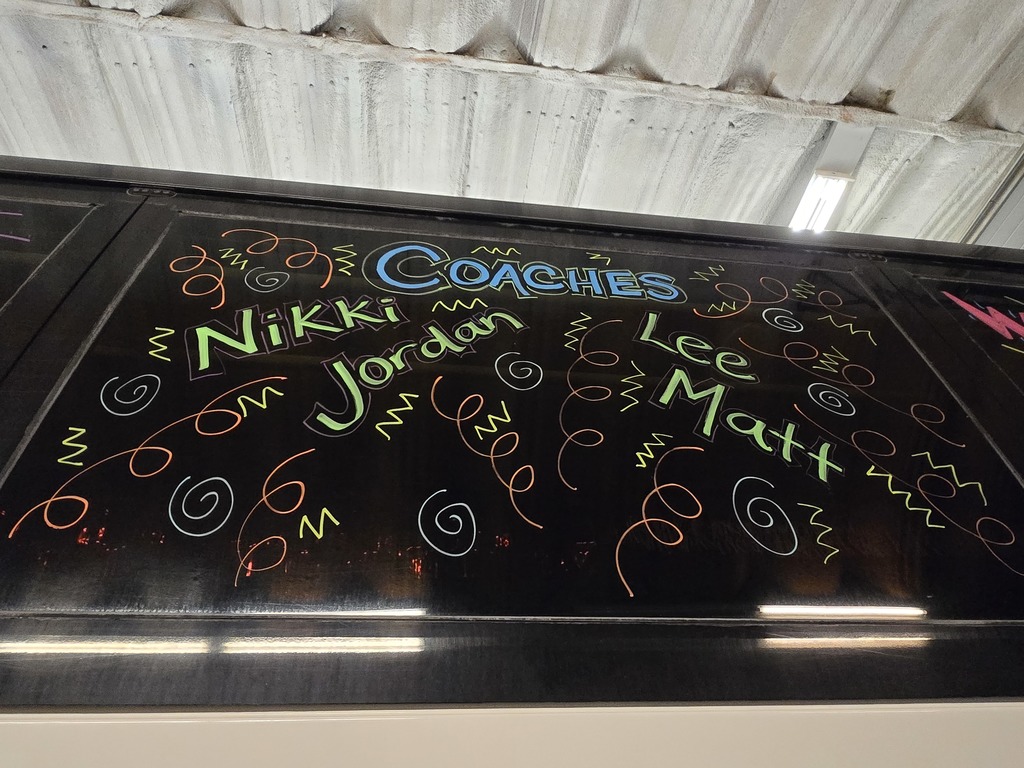 COACHES
Nikki
Jordan
Lee
Matt